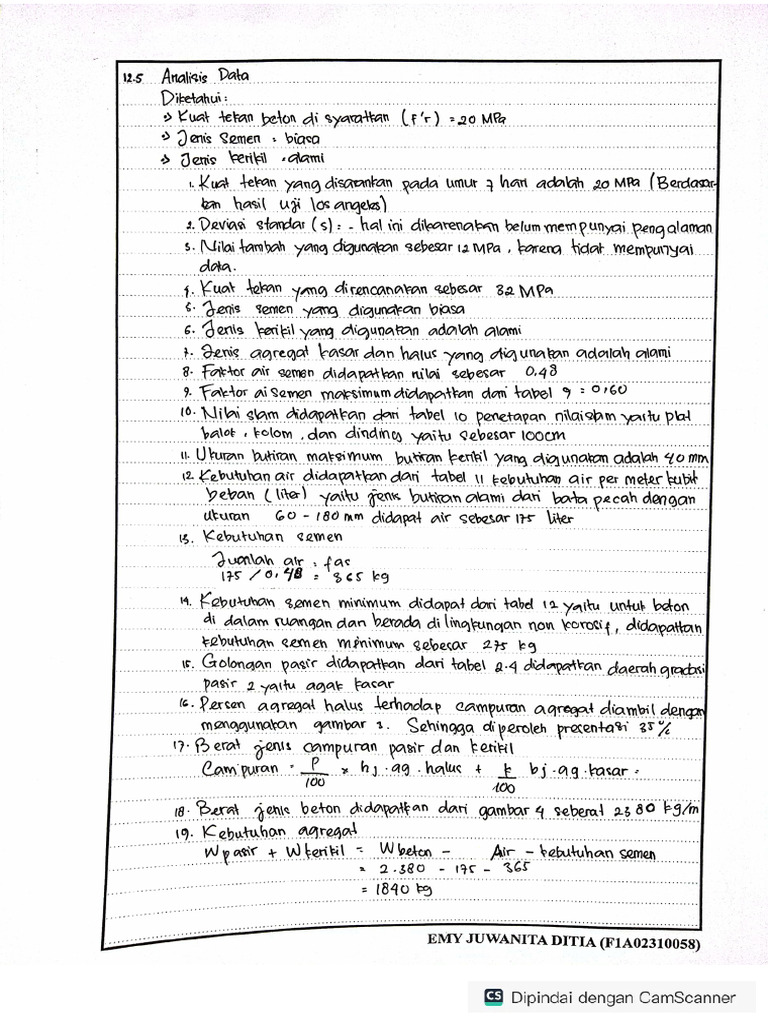 12.5 Analisis Data
Diketahui :
=> Kuat tekan beton di syaratkan (f'r) = 20 MPa
=> Jenis Semen : biasa
=> Jenis kerikil : alami
1. Kuat tekan yang disarankan pada umur 7 hari adalah 20 MPa (Berdasar-
kan hasil uji los angeles)
2. Deviasi standar (s) : - hal ini dikarenakan belum mempunyai pengalaman
3. Nilai tambah yang digunakan sebesar 12 MPa, karena tidak mempunyai
data.
4. Kuat tekan yang direncanakan sebesar 32 MPa
5. Jenis semen yang digunakan biasa
6. Jenis kerikil yang digunakan adalah alami
7. Jenis agregat kasar dan halus yang digunakan adalah alami
8. Faktor air semen didapatkan nilai sebesar 0,48
9. Faktor ai semen maksimum didapatkan dari tabel 9 = 0,60
10. Nilai slam didapatkan dari tabel 10 penetapan nilai slam yaitu plat
balok, kolom, dan dinding yaitu sebesar 100cm
11. Ukuran butiran maksimum butiran kerikil yang digunakan adalah 40 mm
12. Kebutuhan air didapatkan dari tabel 11 kebutuhan air per meter kubik
beban (liter) yaitu jenis butiran alami dari bata pecah dengan
ukuran 60 - 180 mm didapat air sebesar 175 liter
13. Kebutuhan semen
Jumlah air : fas
175 / 0,48 = 365 kg
14. Kebutuhan semen minimum didapat dari tabel 12 yaitu untuk beton
di dalam ruangan dan berada di lingkungan non korosif, didapatkan
kebutuhan semen minimum sebesar 275 kg
15. Golongan pasir didapatkan dari tabel 2.4 didapatkan daerah gradasi
pasir 2 yaitu agak kasar
16. Persen agregat halus terhadap campuran agregat diambil dengan
menggunakan gambar 3. Sehingga diperoleh presentasi 35%
17. Berat jenis campuran pasir dan kerikil
Campuran = P/100 x bj.ag.halus + k/100 bj.ag.kasar =
18. Berat jenis beton didapatkan dari gambar 4 seberat 2380 kg/m
19. Kebutuhan agregat
Wpasir + Wkerikil = Wbeton - Air - kebutuhan semen
= 2.380 - 175 - 365
= 1840 kg
EMY JUWANITA DITIA (F1A02310058)
CS Dipindai dengan CamScanner